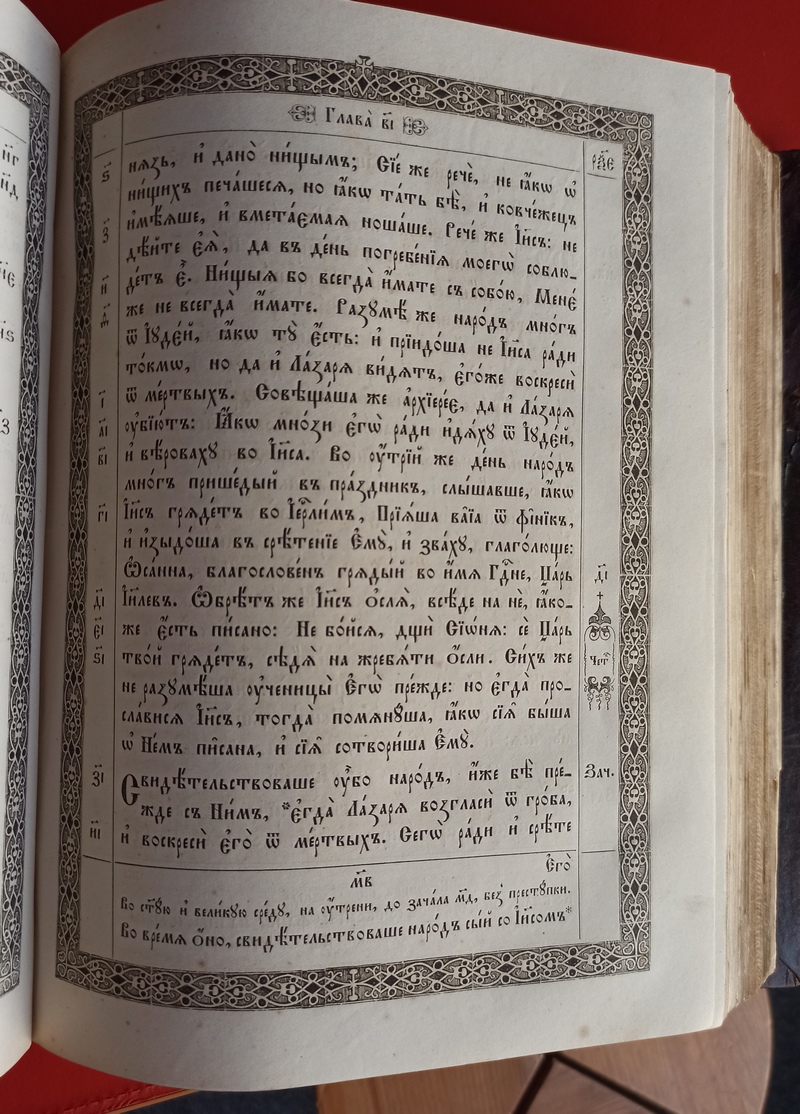 Глава̀ в҃і
рл҃е
ѕ҃ нѧзь, и҆ дано̀ ни́щымъ; Сїе́ же речѐ, не ꙗ҆́кѡ ѡ҆
ни́щихъ печа́шесѧ, но ꙗ҆́кѡ та́ть бѣ̀, и҆ ковче́жецъ
з҃ и҆мѣ́ѧше, и҆ вмета́ємаѧ ноша́ше. Рече́ же І҆и҃съ: не
дѣ́йте є҆ѧ̀, да въ де́нь погребе́нїѧ моегѡ̀ соблю-
и҃ де́тъ є҆̀. Ни́щыѧ бо всегда̀ и҆́мате съ собо́ю, Мене́
ѳ҃ же не всегда̀ и҆́мате. Разꙋмѣ́ же наро́дъ мно́гъ
ѿ І҆ꙋде́й, ꙗ҆́кѡ тꙋ̀ є҆́сть: и҆ прїидо́ша не І҆и҃са ра́ди
то́кмѡ, но да и҆ Ла́зарѧ ви́дѧтъ, є҆го́же воскресѝ
і҃ ѿ ме́ртвыхъ. Совѣща́ша же а҆рхїере́є, да и҆ Ла́зарѧ
а҃і ᲂу҆бїю́тъ: Ꙗ҆́кѡ мно́зи є҆гѡ̀ ра́ди и҆дѧ́хꙋ ѿ І҆ꙋде́й,
в҃і и҆ вѣ́ровахꙋ во І҆и҃са. Во ᲂу҆́трїй же де́нь наро́дъ
мно́гъ прише́дый въ пра́здникъ, слы́шавше, ꙗ҆́кѡ
г҃і І҆и҃съ грѧде́тъ во І҆ерⷭ҇ли́мъ, Прїѧ́ша ва́їа ѿ фі́нїкъ,
и҆ и҆зыдо́ша въ срѣ́тенїе Є҆мꙋ̀, и҆ зва́хꙋ, глаго́люще:
Ѡ҆са́нна, благослове́нъ грѧды́й во и҆́мѧ Гдⷭ҇не, Ца́рь
д҃і
д҃і І҆и҃левъ. Ѡ҆брѣ́тъ же І҆и҃съ ѻ҆слѧ̀, всѣ́де на нѐ, ꙗ҆́ко-
є҃і же є҆́сть пи́сано: Не бо́йсѧ, дщѝ Сїѡ́нѧ: сѐ Ца́рь
ѕ҃і тво́й грѧде́тъ, сѣдѧ̀ на жребѧ́ти ѻ҆́сли. Си́хъ же
Чет҃
не разꙋмѣ́ша ᲂу҆ченицы̀ Є҆гѡ̀ пре́жде: но є҆гда̀ про-
сла́висѧ І҆и҃съ, тогда̀ помѧнꙋ́ша, ꙗ҆́кѡ сїѧ̑ бы́ша
ѡ҆ Не́мъ пи̑сана, и҆ сїѧ̑ сотвори́ша Є҆мꙋ̀.
з҃і Свидѣ́тельствоваше ᲂу҆̀бо наро́дъ, и҆́же бѣ̀ пре́-
Зач.
жде съ Ни́мъ, *є҆гда̀ Ла́зарѧ возгласѝ ѿ гро́ба,
и҃і и҆ воскресѝ є҆го̀ ѿ ме́ртвыхъ. Сегѡ̀ ра́ди и҆ срѣ́те
є҆го̀
м҃в
Во ст҃ꙋ́ю и҆ вели́кꙋю сре́дꙋ, на ᲂу҆́трени, до зача́ла м҃д, без̾ престꙋ́пки.
Во вре́мѧ ѻ҆́но, свидѣ́тельствоваше наро́дъ сы́й со І҆и҃сомъ*